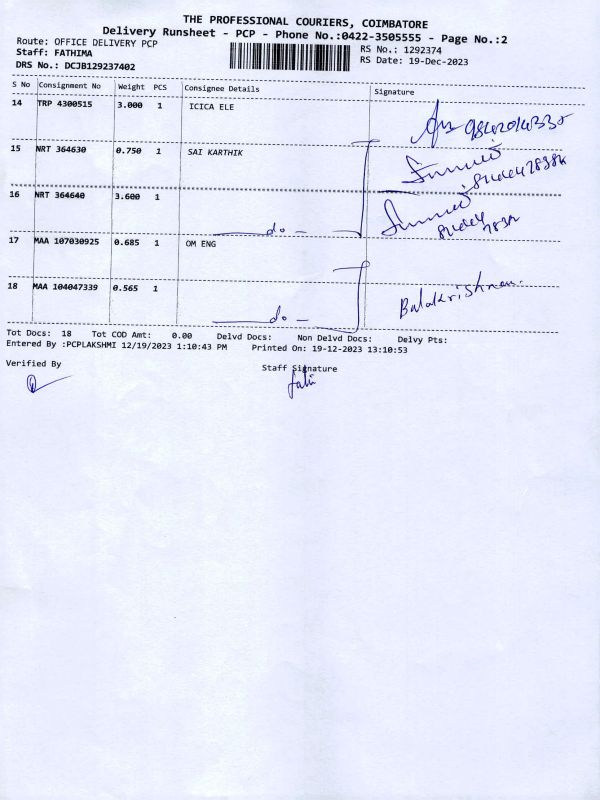 THE PROFESSIONAL COURIERS, COIMBATORE
Delivery Runsheet - PCP - Phone No.:0422-3505555 - Page No.:2
Route: OFFICE DELIVERY PCP
RS No.: 1292374
Staff: FATHIMA
RS Date: 19-Dec-2023
DRS No.: DCJB129237402
S No Consignment No Weight PCS Consignee Details Signature
14 TRP 4300515 3.000 1 ICICA ELE
15 NRT 364630 0.750 1 SAI KARTHIK
16 NRT 364640 3.600 1
do
17 MAA 107030925 0.685 1 OM ENG
18 MAA 104047339 0.565 1 Balakrishnan.
do
Tot Docs: 18 Tot COD Amt: 0.00 Delvd Docs: Non Delvd Docs: Delvy Pts:
Entered By :PCPLAKSHMI 12/19/2023 1:10:43 PM Printed On: 19-12-2023 13:10:53
Verified By
Staff Signature